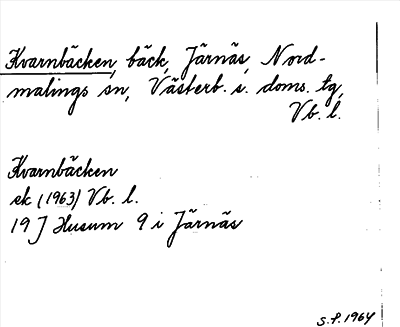 Kvarnbäcken, bäck, Järnäs, Nord-
malings sn, Västerb. s. doms. tg,
Vb. l.
Kvarnbäcken
ek (1963) Vb. l.
19 J Husum 9 i Järnäs
S.P. 1964